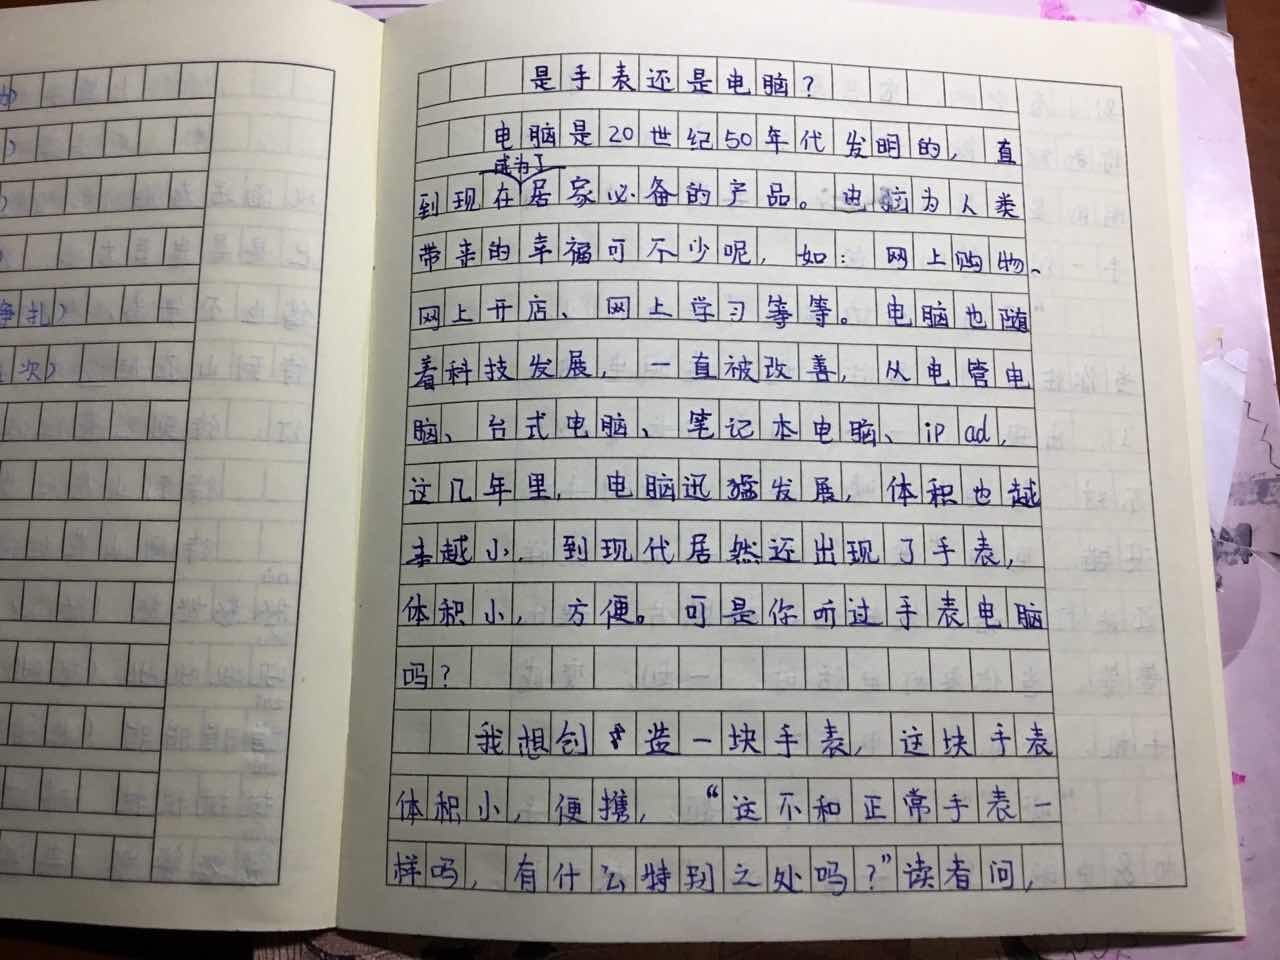 是手表还是电脑？
电脑是20世纪50年代发明的，直
成为了
到现在居家必备的产品。电脑为人类
带来的幸福可不少呢，如：网上购物、
网上开店、网上学习等等。电脑也随
着科技发展，一直被改善，从电管电
脑、台式电脑、笔记本电脑、iPad，
这几年里，电脑迅猛发展，体积也越
来越小，到现代居然还出现了手表，
体积小，方便。可是你听过手表电脑
吗？
我想创造一块手表，这块手表
体积小，便携，“这不和正常手表一
样吗，有什么特别之处吗？”读者问，
挣扎）
次）